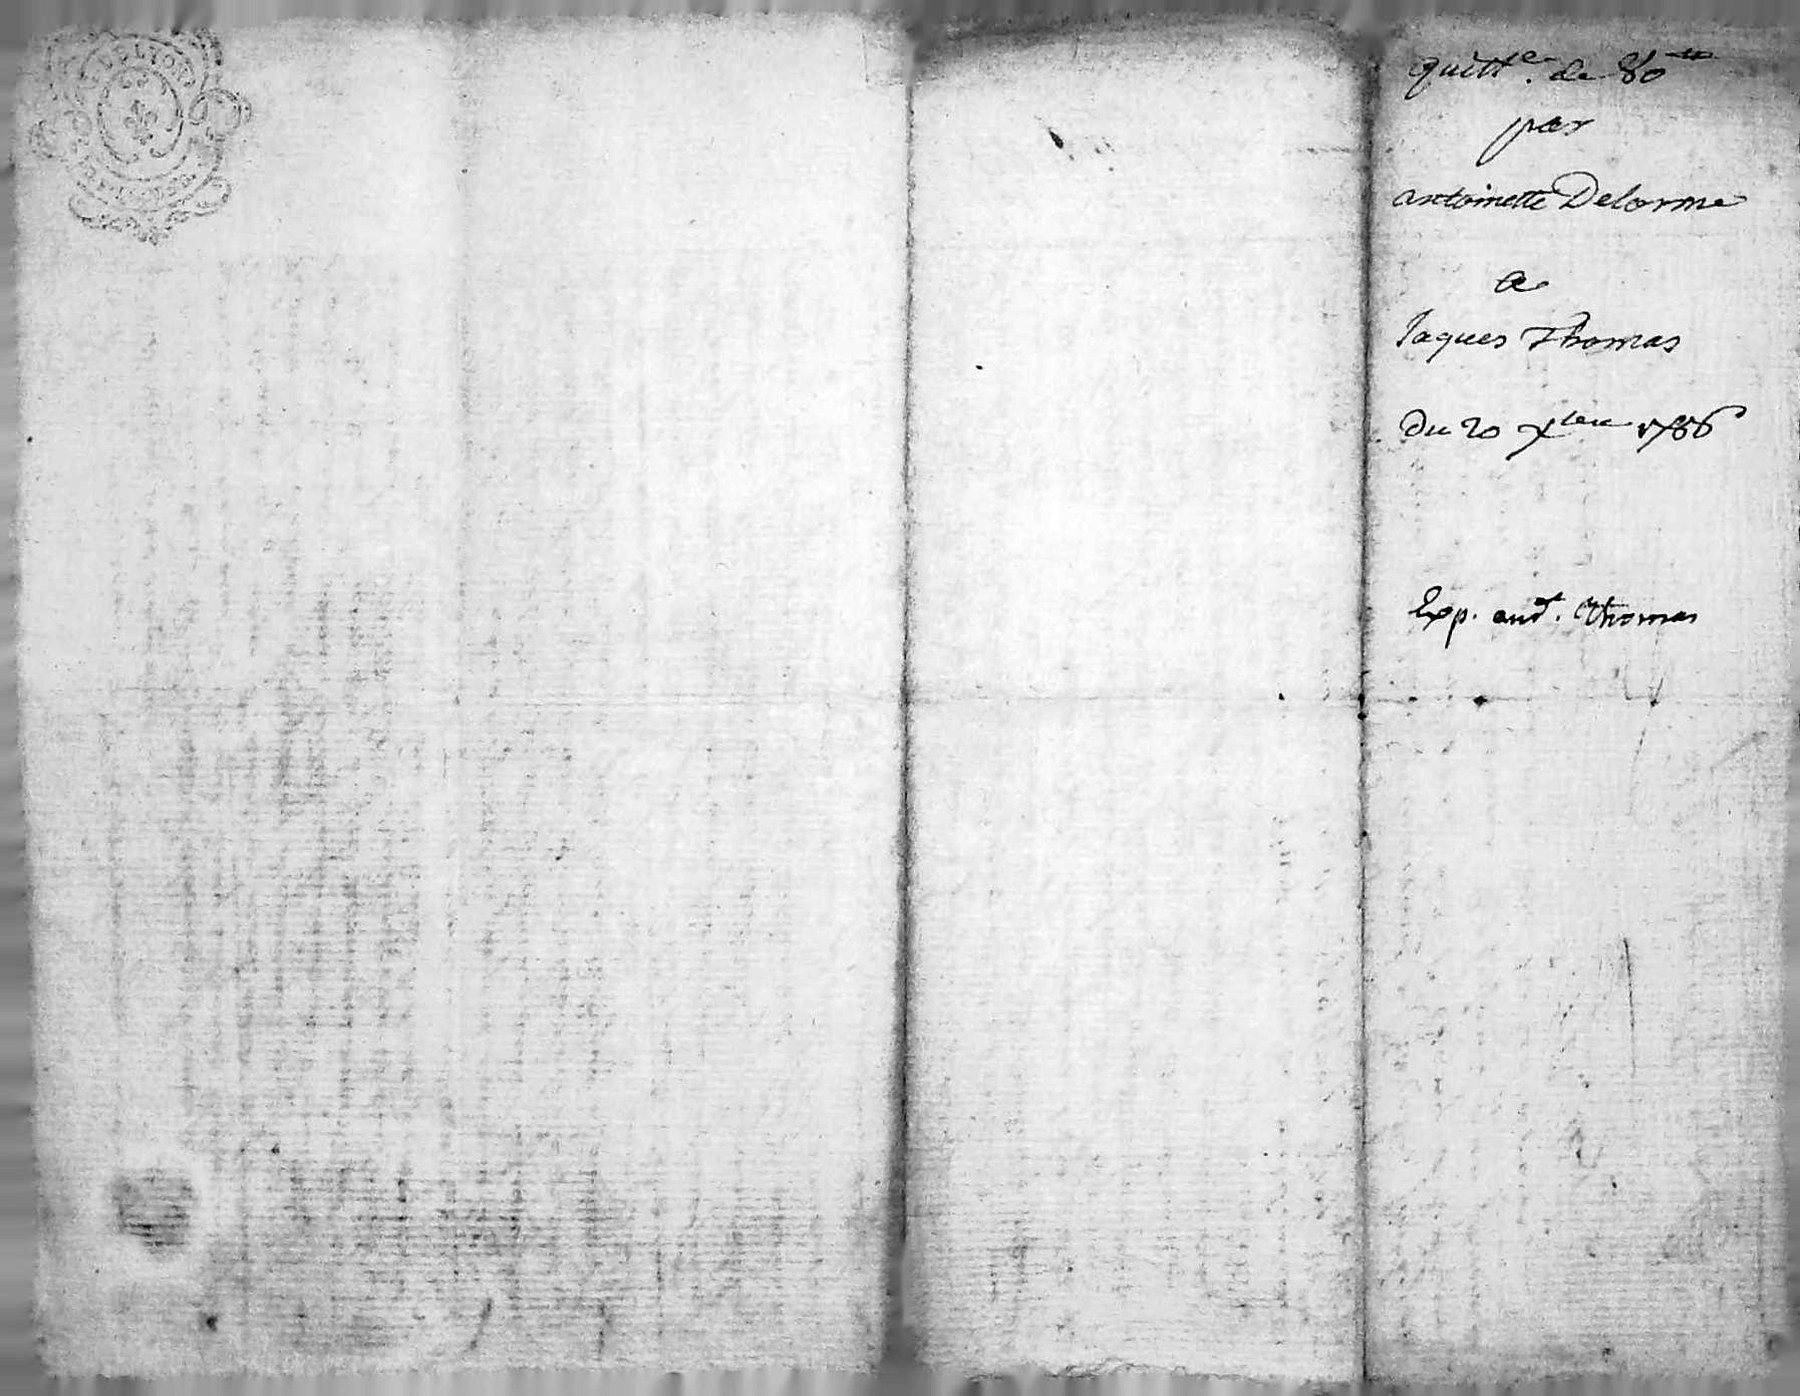 quitt.ce de 80 tt
par
antoinette Delorme
a
Jaques Thomas
Du 20 Xbre 1786
Exp. aud.t Thomas